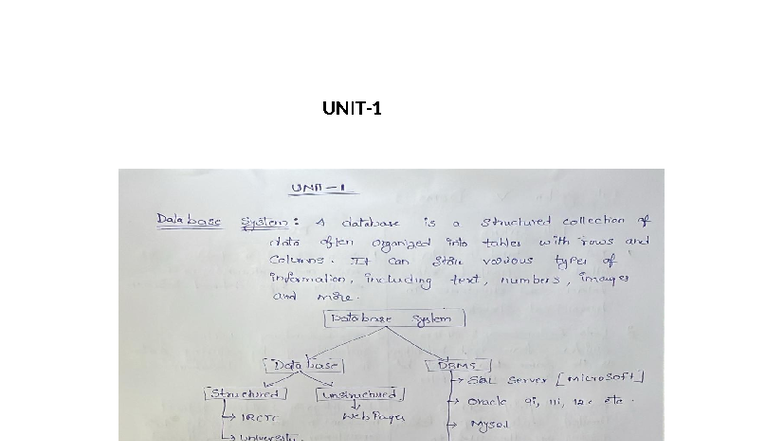 UNIT-1
UNIT-1
Database System: A database is a structured collection of
data often organized into tables with rows and
Columns. It can store various types of
information, including text, numbers, images
and more.
Database System
Database DBMS
→ SQL Server [Microsoft]
Structured Unstructured
→ Oracle 9i, 11i, 12c etc.
→ IRCTC Web Pages
→ MySQL
→ University